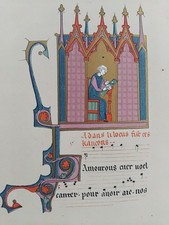 Adans li bocus fist ces
kancons
Amourous cuer voel
canter · pour auoir aie · nos